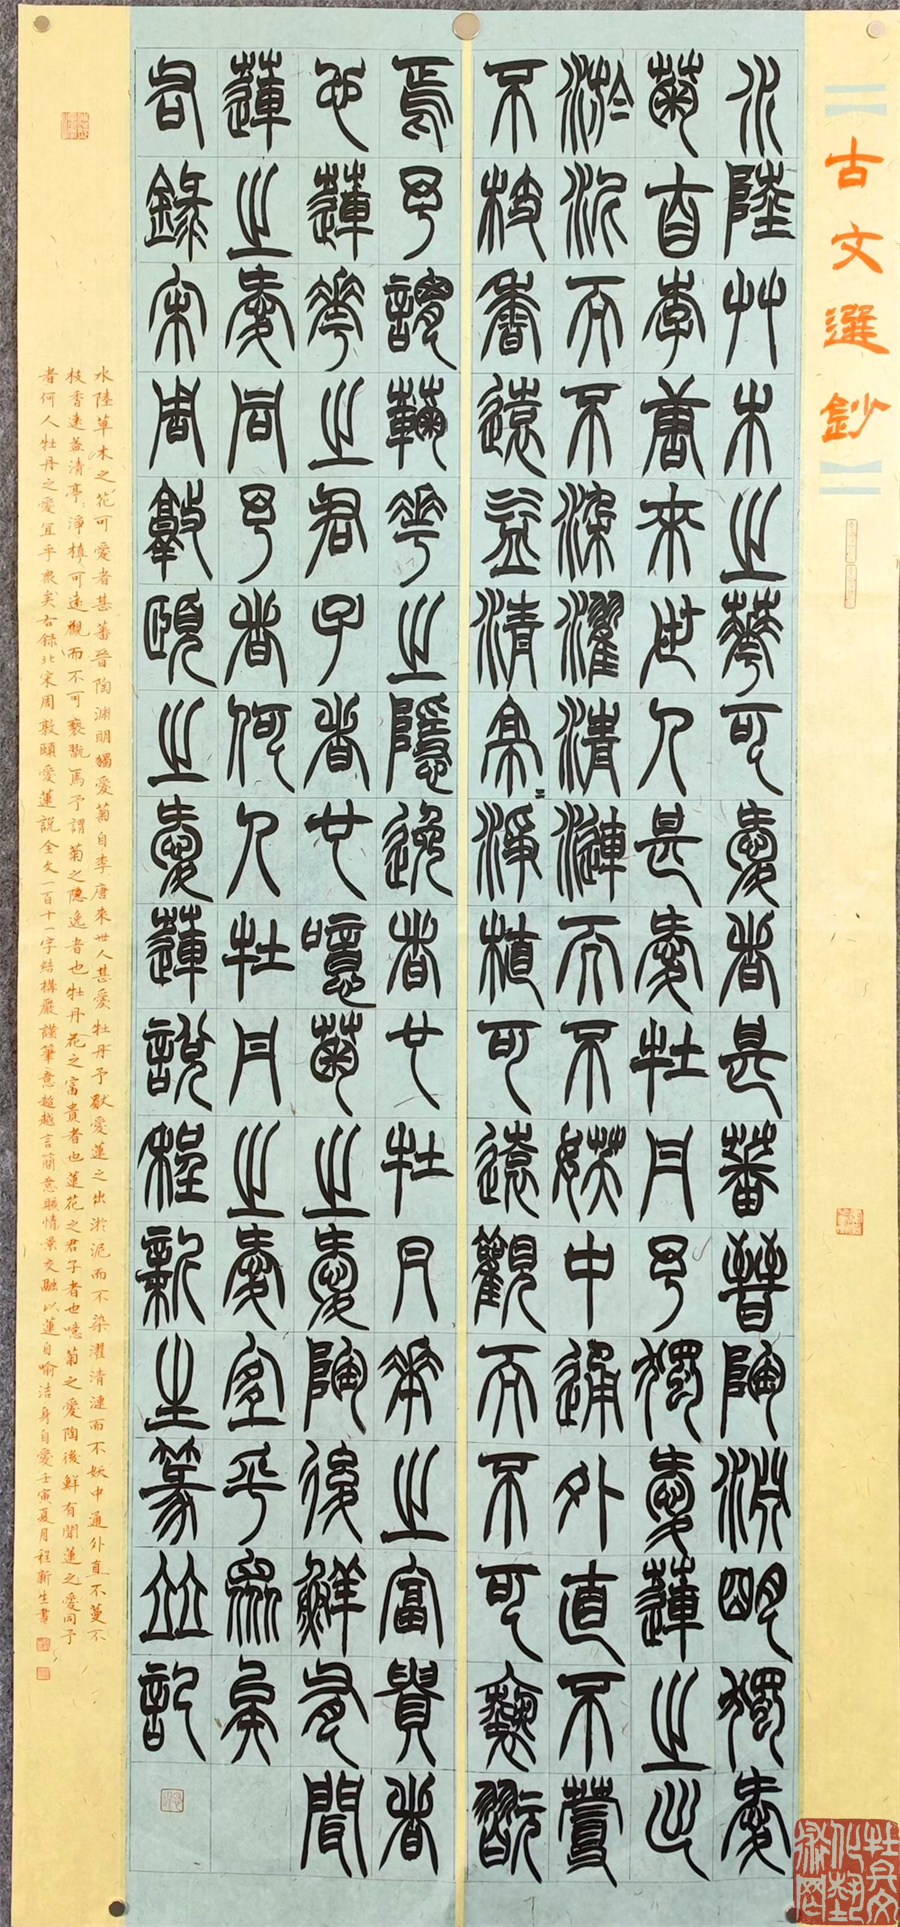 古文選鈔
水陸艸木之華可愛者甚蕃晉陶淵明獨愛
菊自李唐來世人甚愛牡丹予獨愛蓮之出
淤泥而不染濯清漣而不妖中通外直不蔓
不枝香遠益清亭=淨植可遠觀而不可褻翫
焉予謂鞠華之隱逸者也牡丹華之富貴者
也蓮華之君子者也噫菊之愛陶後鮮有聞
蓮之愛同予者何人牡丹之愛宜乎眾矣
右錄宋周敦頤之愛蓮說程新生篆並記
水陸草木之花可愛者甚蕃晉陶淵明獨愛菊自李唐來世人甚愛牡丹予獨愛蓮之出淤泥而不染濯清漣而不妖中通外直不蔓不
枝香遠益清亭:淨植可遠觀而不可褻翫焉予謂菊之隱逸者也牡丹花之富貴者也蓮花之君子者也噫菊之愛陶後鮮有聞蓮之愛同予
者何人牡丹之愛宜乎眾矣右錄北宋周敦頤愛蓮說全文一百十一字結構嚴謹筆意超越言簡意賅情景交融以蓮自喻洁身自愛壬寅夏月程新生書